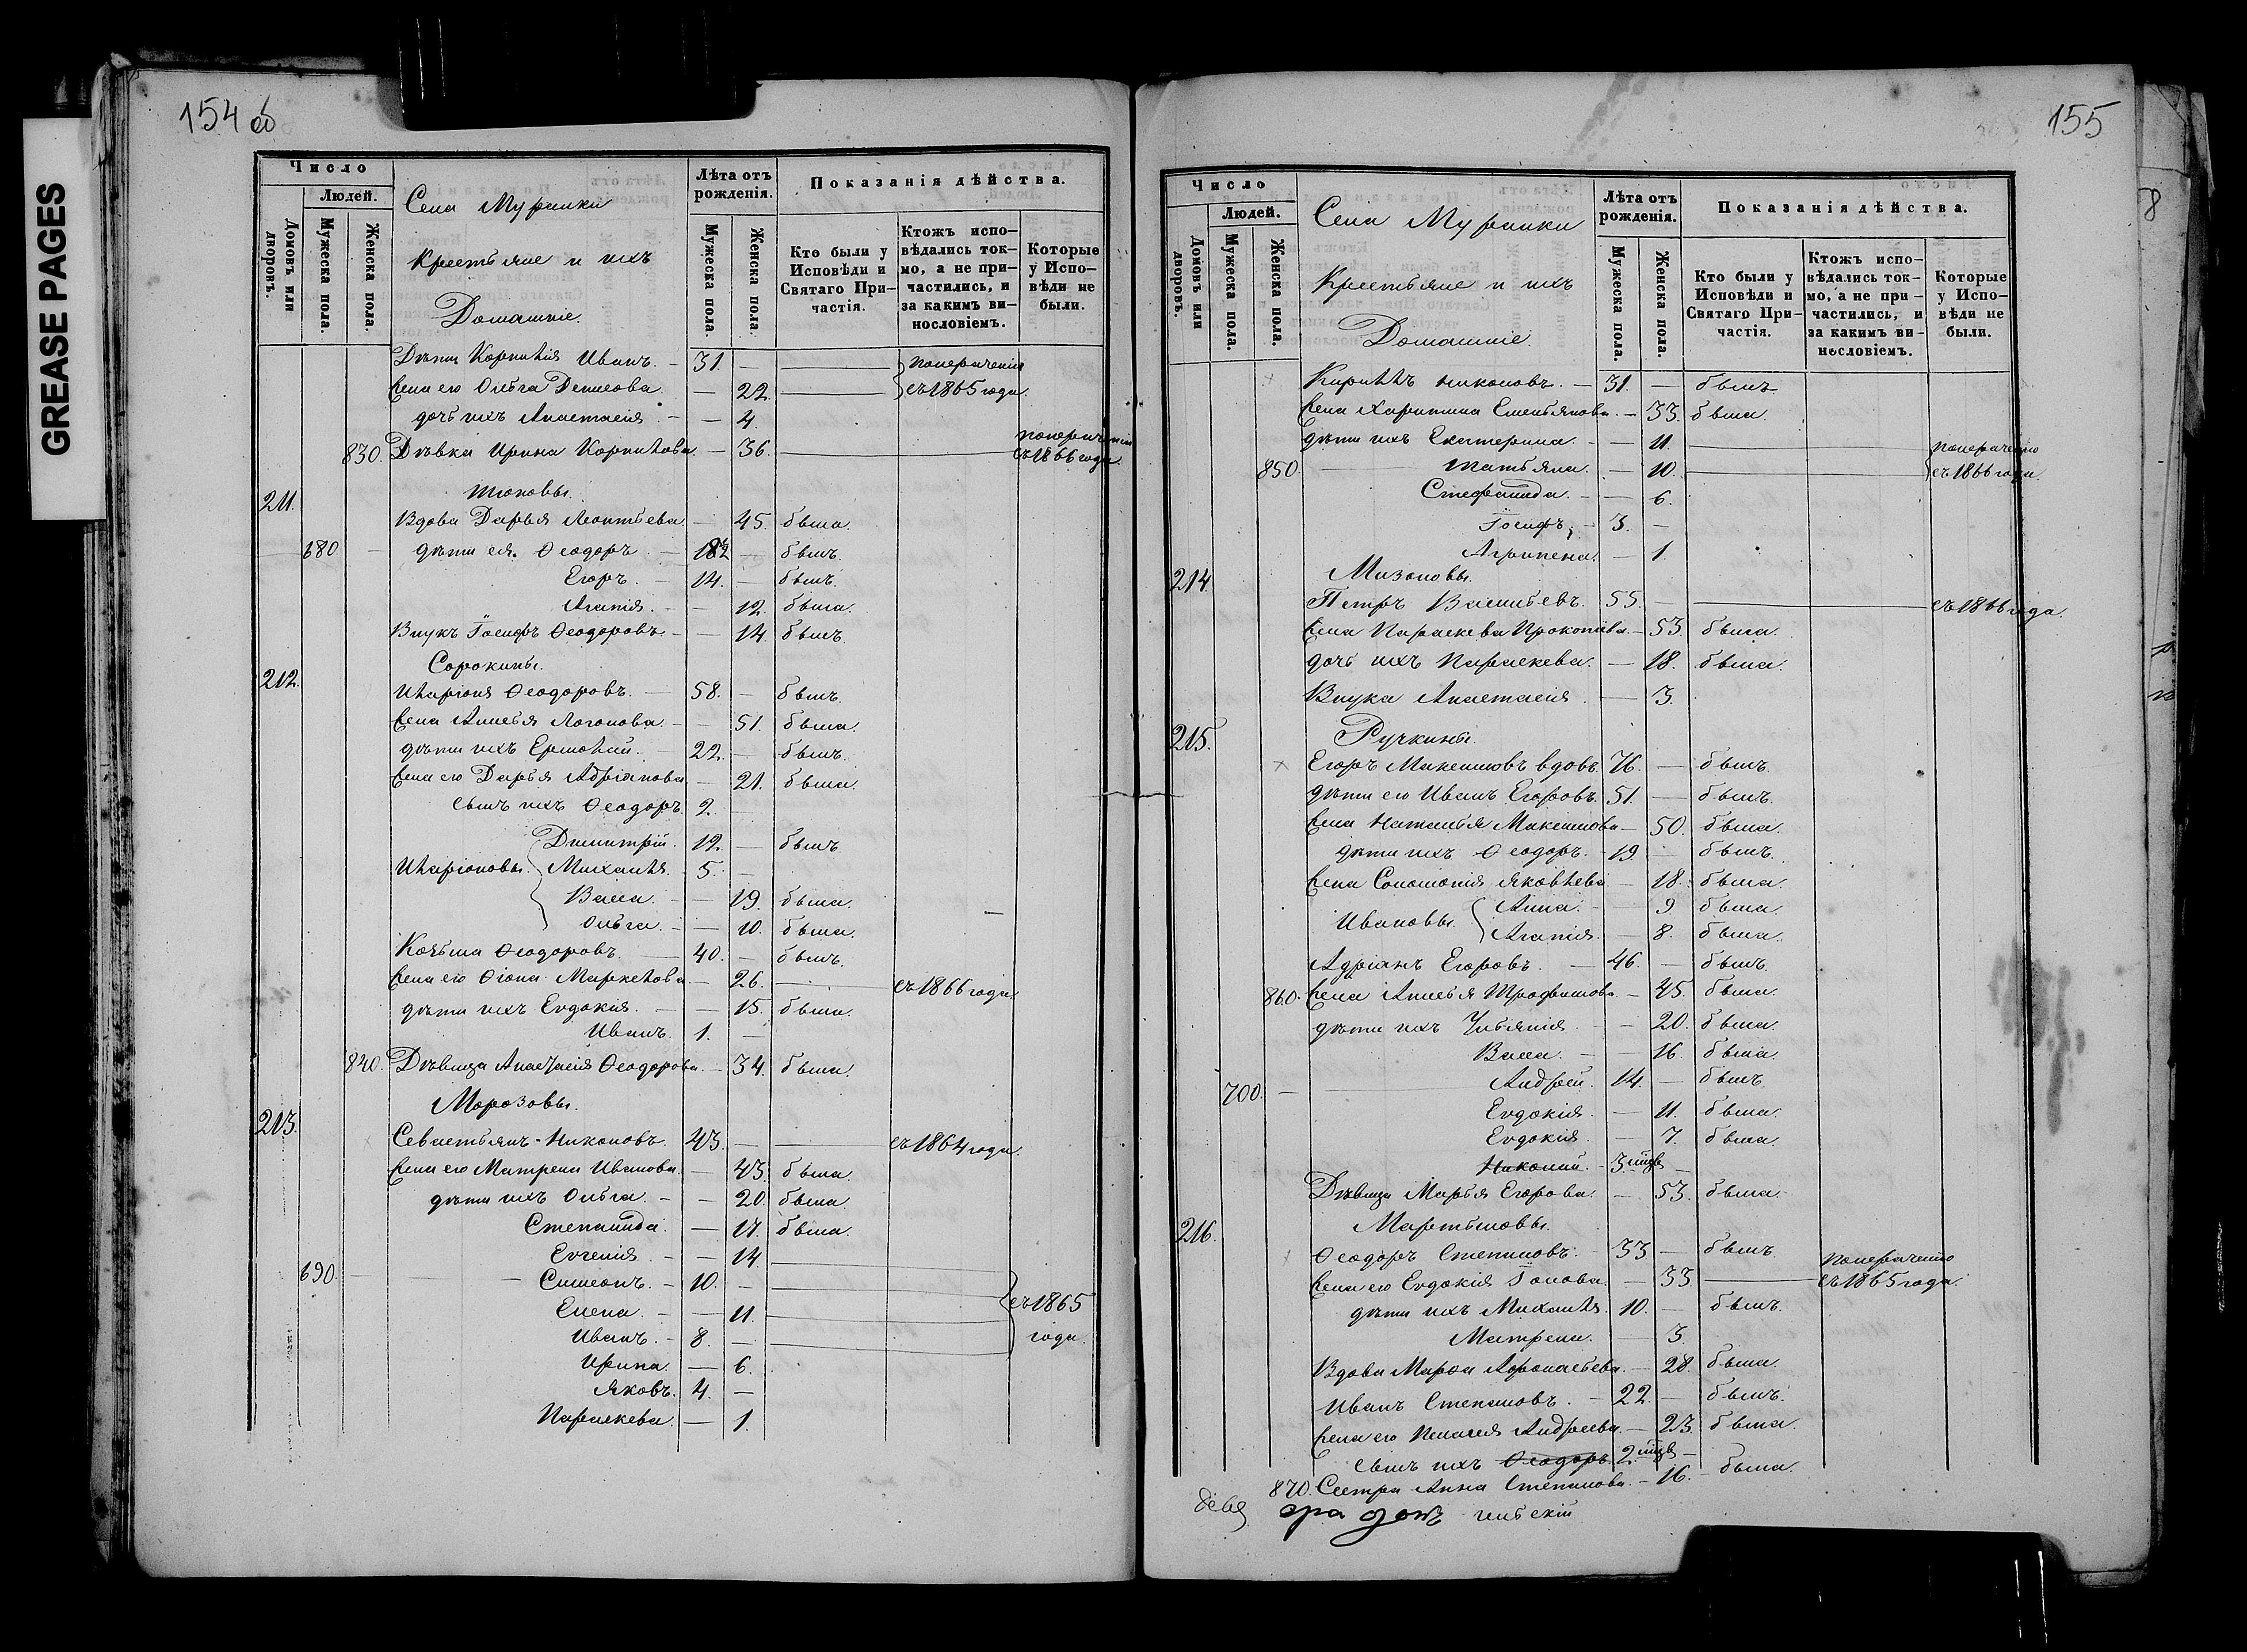 GREASE PAGES
154 об
Число
Людей.
Домовъ или дворовъ.
Мужеска пола.
Женска пола.
Села Муранки
Крестьяне и ихъ
Домашніе.
Лѣта отъ рожденія.
Мужеска пола.
Женска пола.
Показанія дѣйства.
Кто были у Исповѣди и Святаго При-частія.
Ктожъ испо-вѣдались ток-мо, а не при-частились, и за какимъ ви-нословіемъ.
Которые у Испо-вѣди не были.
Дѣти Корнилія Иванъ. — 31. —
Жена его Ольга Денисова — 22.
дочь ихъ Анастасія — 4.
съ 1865 года.
830. Дѣвка Ирина Корнилова — 36.
съ 1866 года.
211.
Вдова Дарья Леонтьева — 45. была.
680 дѣти ея. Ѳеодоръ — былъ.
Егоръ. — 14. — былъ.
Агапія. — 12. была.
Внукъ Іосифъ Ѳеодоровъ. — 14. былъ.
212. Сорокины.
Иларіонъ Ѳеодоровъ. — 58. — былъ.
Жена Анисья Логонова. — 51. была.
дѣти ихъ Ермолай. — 22. — былъ.
Жена его Дарья Адріанова — 21. была.
сынъ ихъ Ѳеодоръ. 2.
Димитрій. 12. — былъ.
Иларіоновы. Михаилъ. 5. —
Васса. — 19. была.
Ольга. — 10. была.
Козьма Ѳеодоровъ. — 40. — былъ.
Жена его Ѳіона Маркелова — 26. — съ 1866 года.
дѣти ихъ Евдокія. — 15. была.
Иванъ. 1. —
840. Дѣвица Анастасія Ѳеодорова — 34. была.
213. Морозовы.
Севастьянъ Никоновъ. 43. — съ 1864 года.
Жена его Матрена Иванова. — 43. была.
дѣти ихъ Ольга. — 20. была.
Степанида. — 17. была.
Евгенія — 14.
690. Симеонъ. — 10. —
Елена. — 11.
съ 1865
Иванъ. — 8. —
года.
Ирина. — 6.
Яковъ. 4. —
Параскева. — 1.
155
Число
Людей.
Домовъ или дворовъ.
Мужеска пола.
Женска пола.
Села Муранки
Крестьяне и ихъ
Домашніе.
Лѣта отъ рожденія.
Мужеска пола.
Женска пола.
Показанія дѣйства.
Кто были у Исповѣди и Святаго При-частія.
Ктожъ испо-вѣдались ток-мо, а не при-частились, и за какимъ ви-нословіемъ.
Которые у Испо-вѣди не были.
Кириллъ Никоновъ. — 31. — былъ.
Жена Харитина Емельянова. — 33. была.
дѣти ихъ Екатерина. — 11.
850. Татьяна. — 10.
съ 1866 года.
Стефанида. — 6.
Іосифъ, 3. —
Агрипена. — 1.
214. Мизоновы.
Петръ Васильевъ. 55. — съ 1866 года.
Жена Параскева Прокопіева. — 53. была.
дочь ихъ Параскева. — 18. была.
Внука Анастасія — 3.
215. Ручкины.
Егоръ Максимовъ вдовъ. 76. — былъ.
дѣти его Иванъ Егоровъ. 51. — былъ.
Жена Наталья Максимова — 50. была.
дѣти ихъ Ѳеодоръ. 19. — былъ.
Жена Соломонія Яковлева — 18. была.
Ивановы. Анна. — 9. была.
Агапія. — 8. была.
Адріанъ Егоровъ. — 46. — былъ.
860. Жена Анисья — 45. была.
дѣти ихъ Ульянія — 20. была.
Васса. — 16. была.
700. Андрей. 14. — былъ.
Евдокія. — 11. была.
Евдокія. — 7. была.
Николай. 3.
Дѣвица Марья Егорова. — 53. была.
216. Мартыновы.
Ѳеодоръ Степановъ. 33 — былъ.
Жена его Евдокія Іонова. — 33. — съ 1865 года.
дѣти ихъ Михаилъ. 10. — былъ.
Матрена. — 3.
Вдова Марѳа — 28. была.
Иванъ Степановъ. — 22. — былъ.
Жена его Пелагея Андреева. — 23. была.
сынъ ихъ Ѳеодоръ. 2.
870. Сестра Анна Степанова. — 16. была.